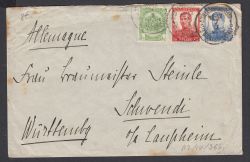 Allemagne
Frau Braumeister Steinle
Schwendi
Württembg o/a Laupheim